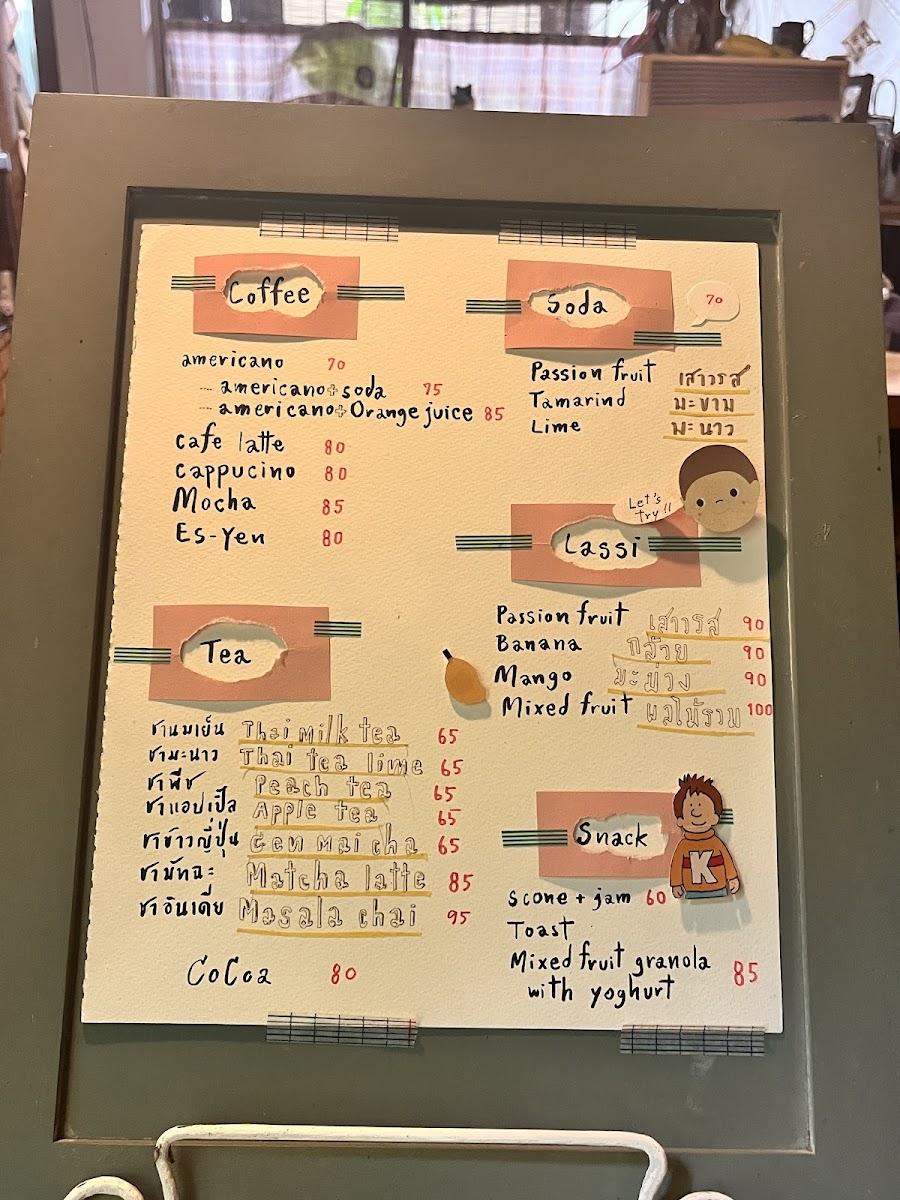 Coffee
americano 70
americano+soda 75
americano+Orange juice 85
cafe latte 80
cappucino 80
Mocha 85
Es-Yen 80
Tea
ชานมเย็น Thai milk tea 65
ชามะนาว Thai tea lime 65
ชาพีช Peach tea 65
ชาแอปเปิ้ล Apple tea 65
ชาข้าวญี่ปุ่น Gen mai cha 65
ชามัทฉะ Matcha latte 85
ชาอินเดีย Masala chai 95
CoCoa 80
Soda 70
Passion fruit เสาวรส
Tamarind มะขาม
Lime มะนาว
Let's
try!!
Lassi
Passion fruit เสาวรส 90
Banana กล้วย 90
Mango มะม่วง 90
Mixed fruit ผลไม้รวม 100
Snack
K
scone + jam 60
Toast
Mixed fruit granola
with yoghurt 85